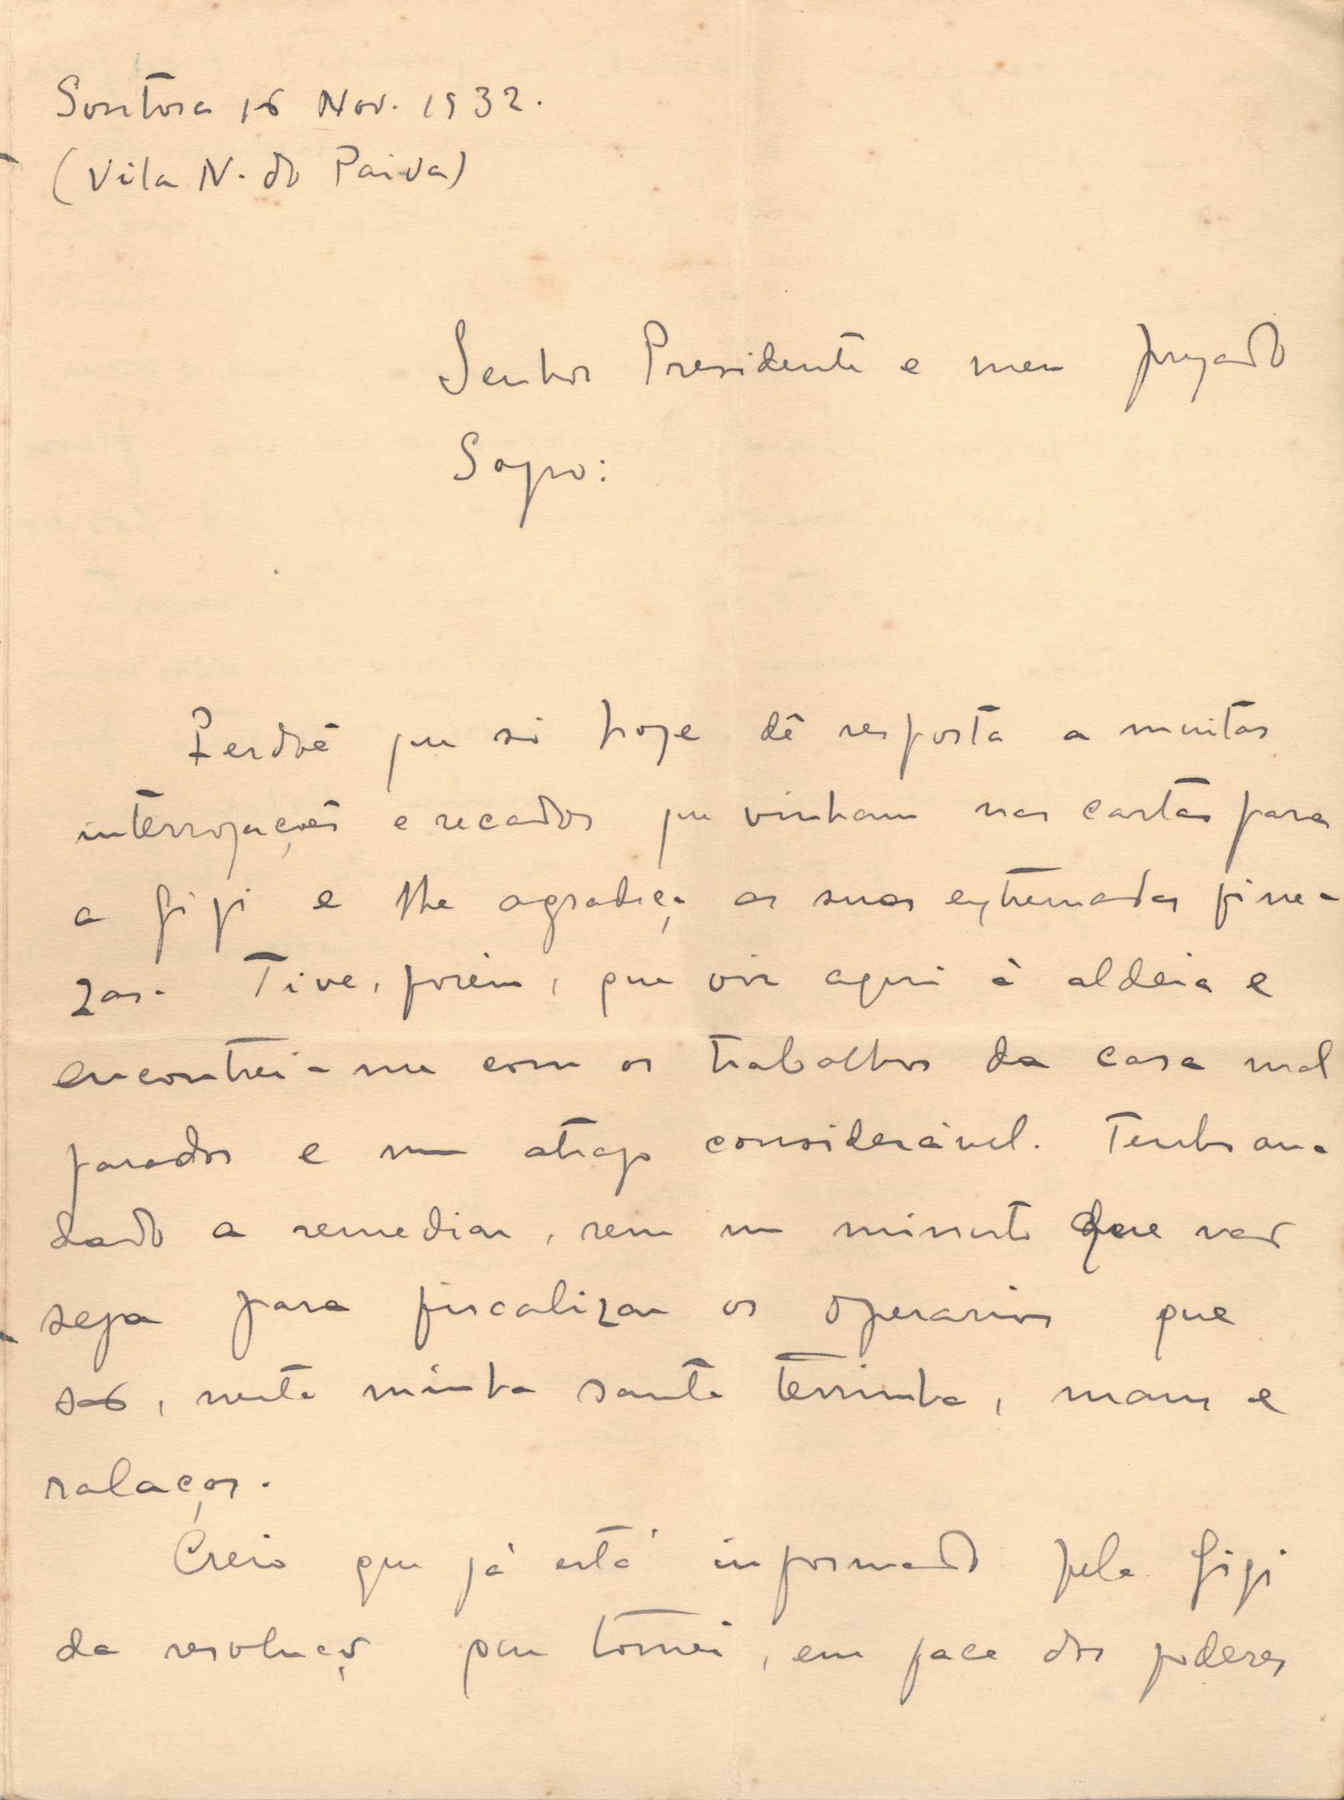 Soutosa 16 Nov. 1932.
(Vila N. do Paiva)
Senhor Presidente e meu prezado
Sogro:
Perdoê que só hoje dê resposta a muitas
interrogações e recados que vinham nas cartas para
a Gigi e lhe agradeça as suas extremadas fine-
zas. Tive, porém, que vir aqui à aldeia e
encontrei-me com os trabalhos da casa mal
parados e num atrazo considerável. Tenho an-
dado a remediar, sem um minuto que não
seja para fiscalizar os operarios que
são, nesta minha santa terrinha, maus e
ralaços.
Creio que já está informado pela Gigi
da resolução que tomei, em face dos poderes